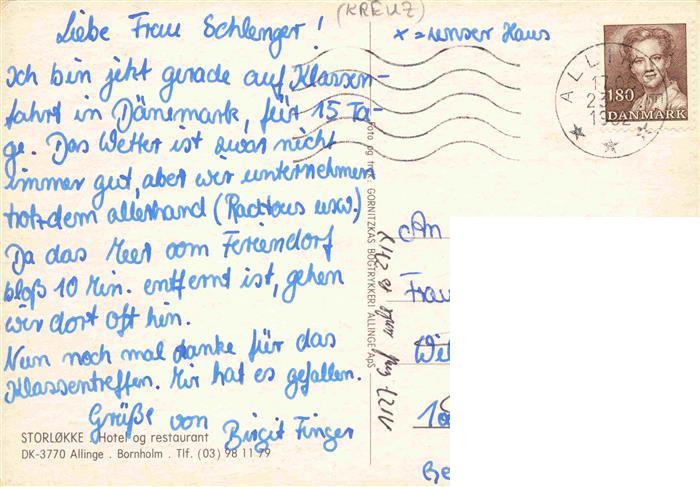 (KREUZ)
Liebe Frau Schlenger!
x = unser Haus
Ich bin jetzt gerade auf Klassen-
fahrt in Dänemark, für 15 Ta-
ge. Das Wetter ist zwar nicht
immer gut, aber wir unternehmen
trotzdem allerhand (Radtous usw.)
Da das Meer vom Feriendorf
bloß 10 Min. entfernt ist, gehen
wir dort oft hin.
Nun noch mal danke für das
Klassentreffen. Mir hat es gefallen.
Grüße von
Birgit Finger
STORLØKKE Hotel og restaurant
DK-3770 Allinge . Bornholm . Tlf. (03) 98 11 79
Foto og tryk: GORNITZKAS BOGTRYKKERI ALLINGE ApS
180
DANMARK
An
Frau